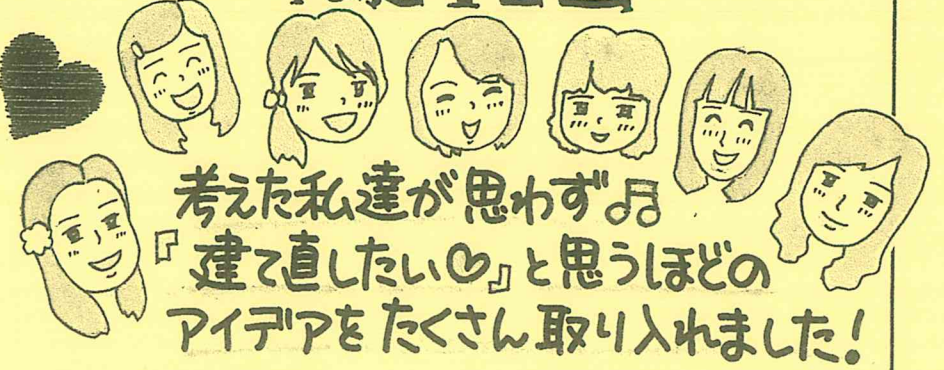 考えた私達が思わず♫
『建て直したい♡』と思うほどの
アイデアをたくさん取り入れました!